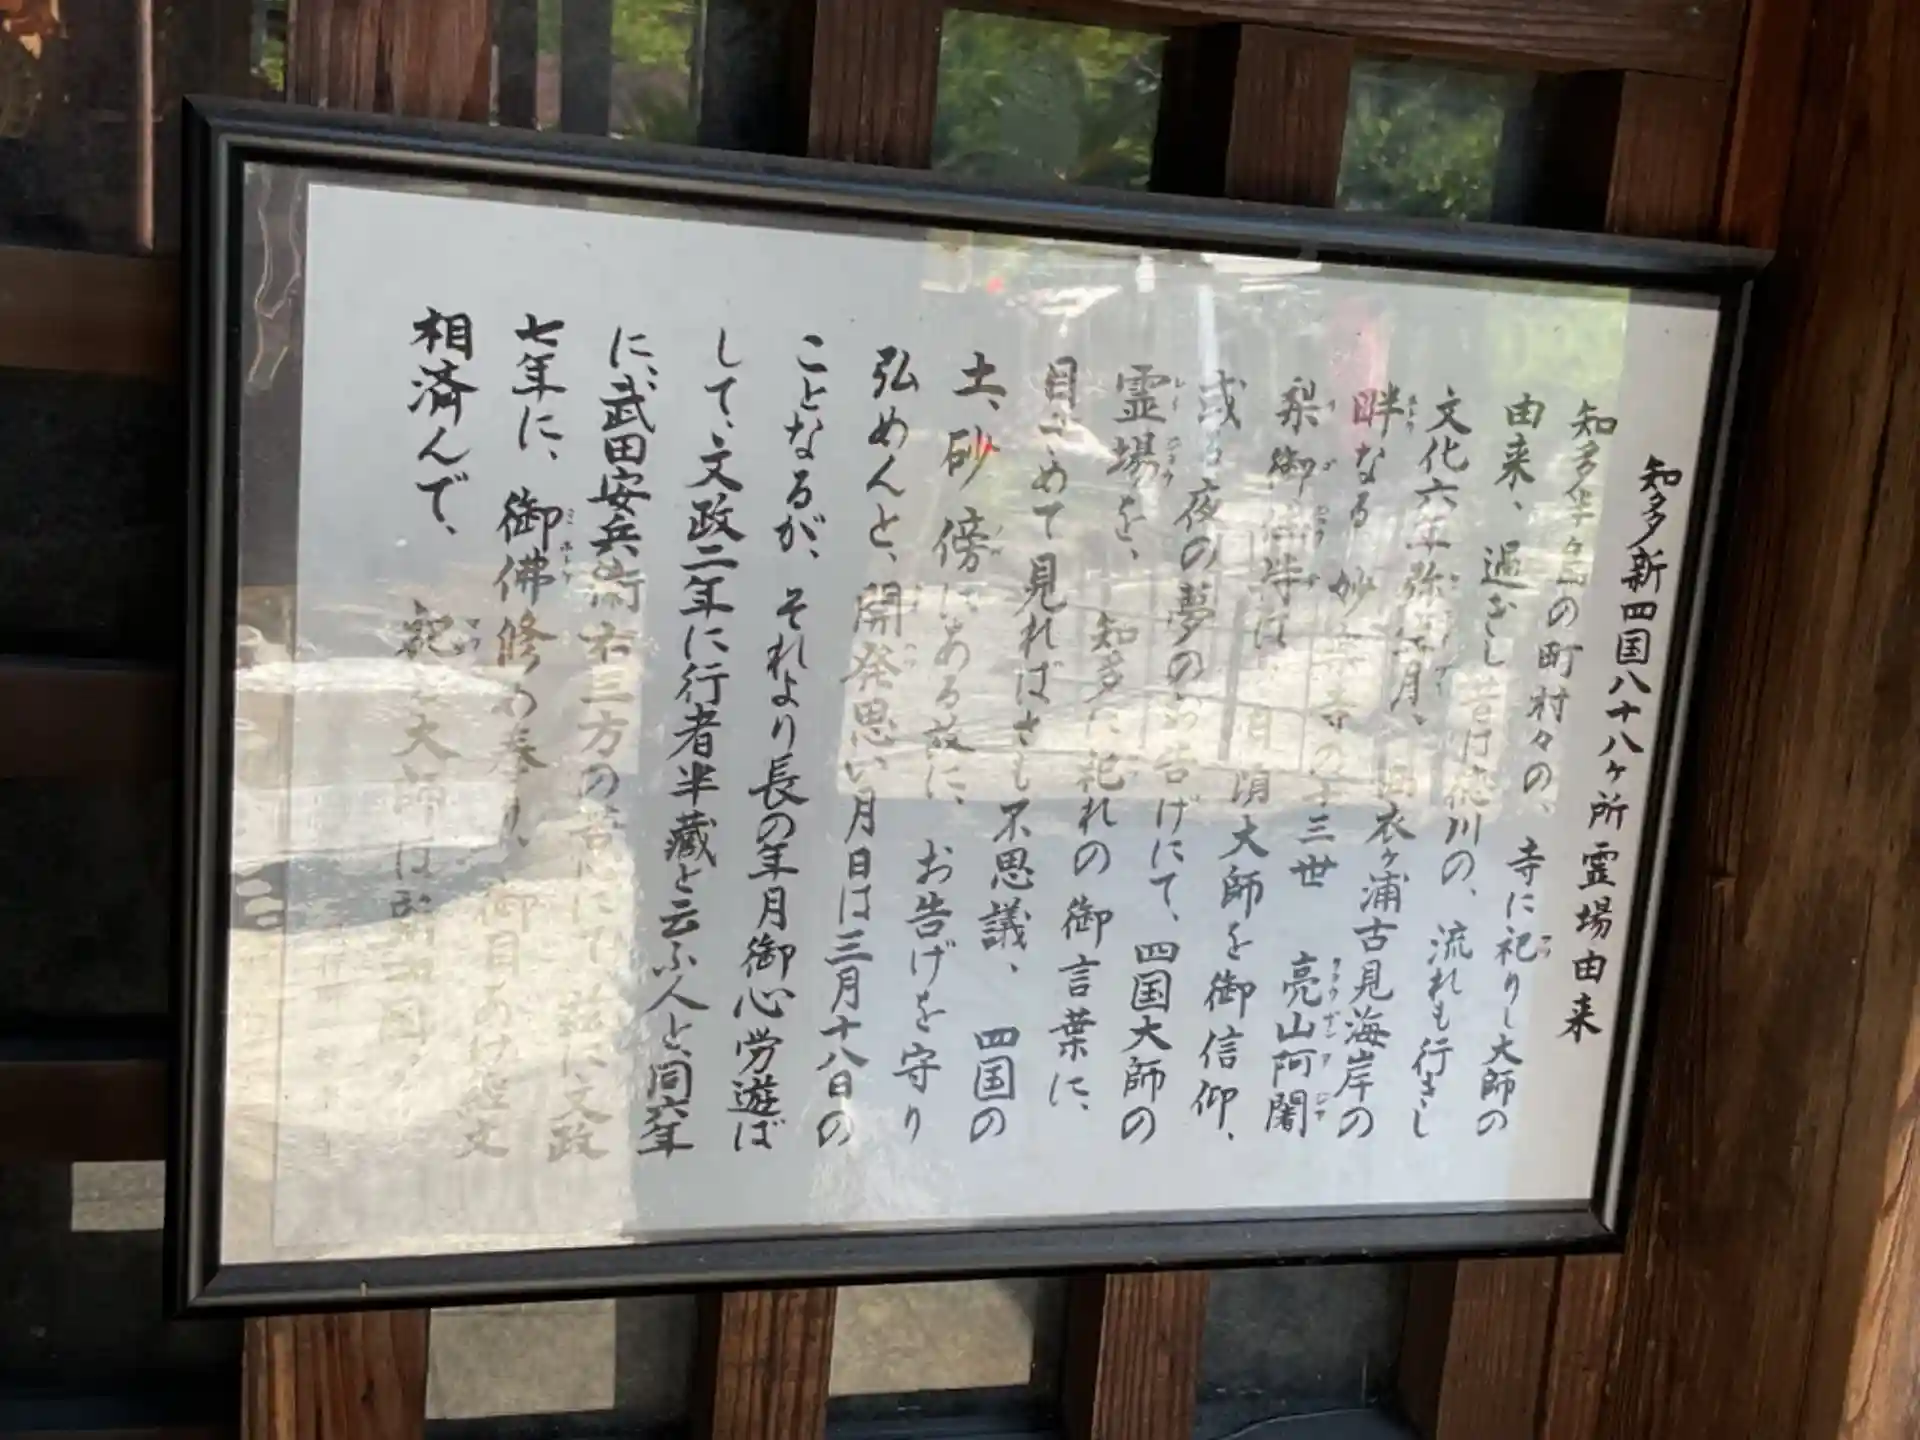 知多新四国八十八ヶ所霊場由来
知多半島の町村々の、寺に祀りし大師の
由来、過ぎし昔は徳川の、流れも行きし
文化六年弥生月、衣ヶ浦古見海岸の
畔なる妙楽寺の十三世 亮山阿闍
梨御は 大師を御信仰、
或る夜の夢のお告げにて、四国大師の
霊場を、知多に祀れの御言葉に、
目さめて見ればさも不思議、四国の
土、砂傍にある故に、お告げを守り
弘めんと、開発思い月日は三月十八日の
ことなるが、それより長の年月御心労遊ば
して、文政二年に行者半蔵と云ふ人と、同六年
に、武田安兵衛右三方の にて、 に文政
七年に、御佛修め奉り、御目あけ経文
相済んで、 祀る大師は